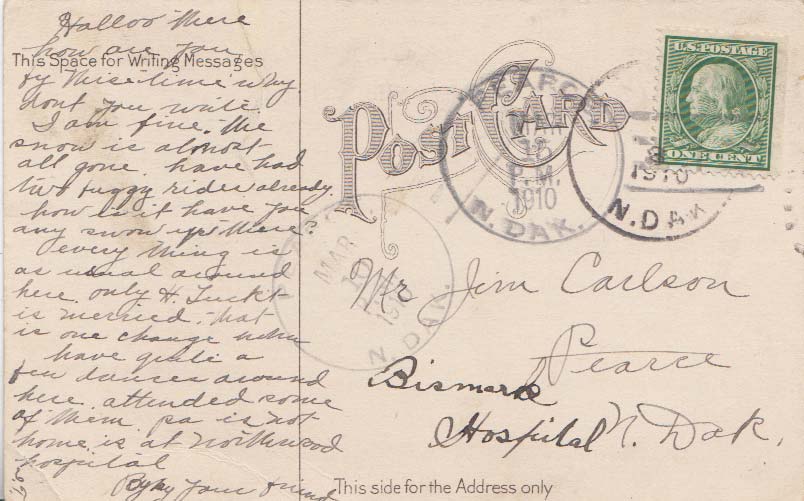 Halloo There
how are you
This Space for Writing Messages
by this time why
dont you write.
I am fine. the
snow is almost
all gone. have had
two buggy rides already.
how is it have you
any snow up there?
every thing is
as usual around
here. only H.
is merried. that
is one change
have quite a
few dances around
here. attended some
of them. pa is not
home. is at northwood
hospital
By by your friend
POST CARD
MAR
12
P.M.
1910
N. DAK.
U.S. POSTAGE
ONE CENT
8
1910
N. DAK
MAR
N. DAK.
Mr Jim Carlson
Pearce
Bismark
Hospital N. Dak.
This side for the Address only